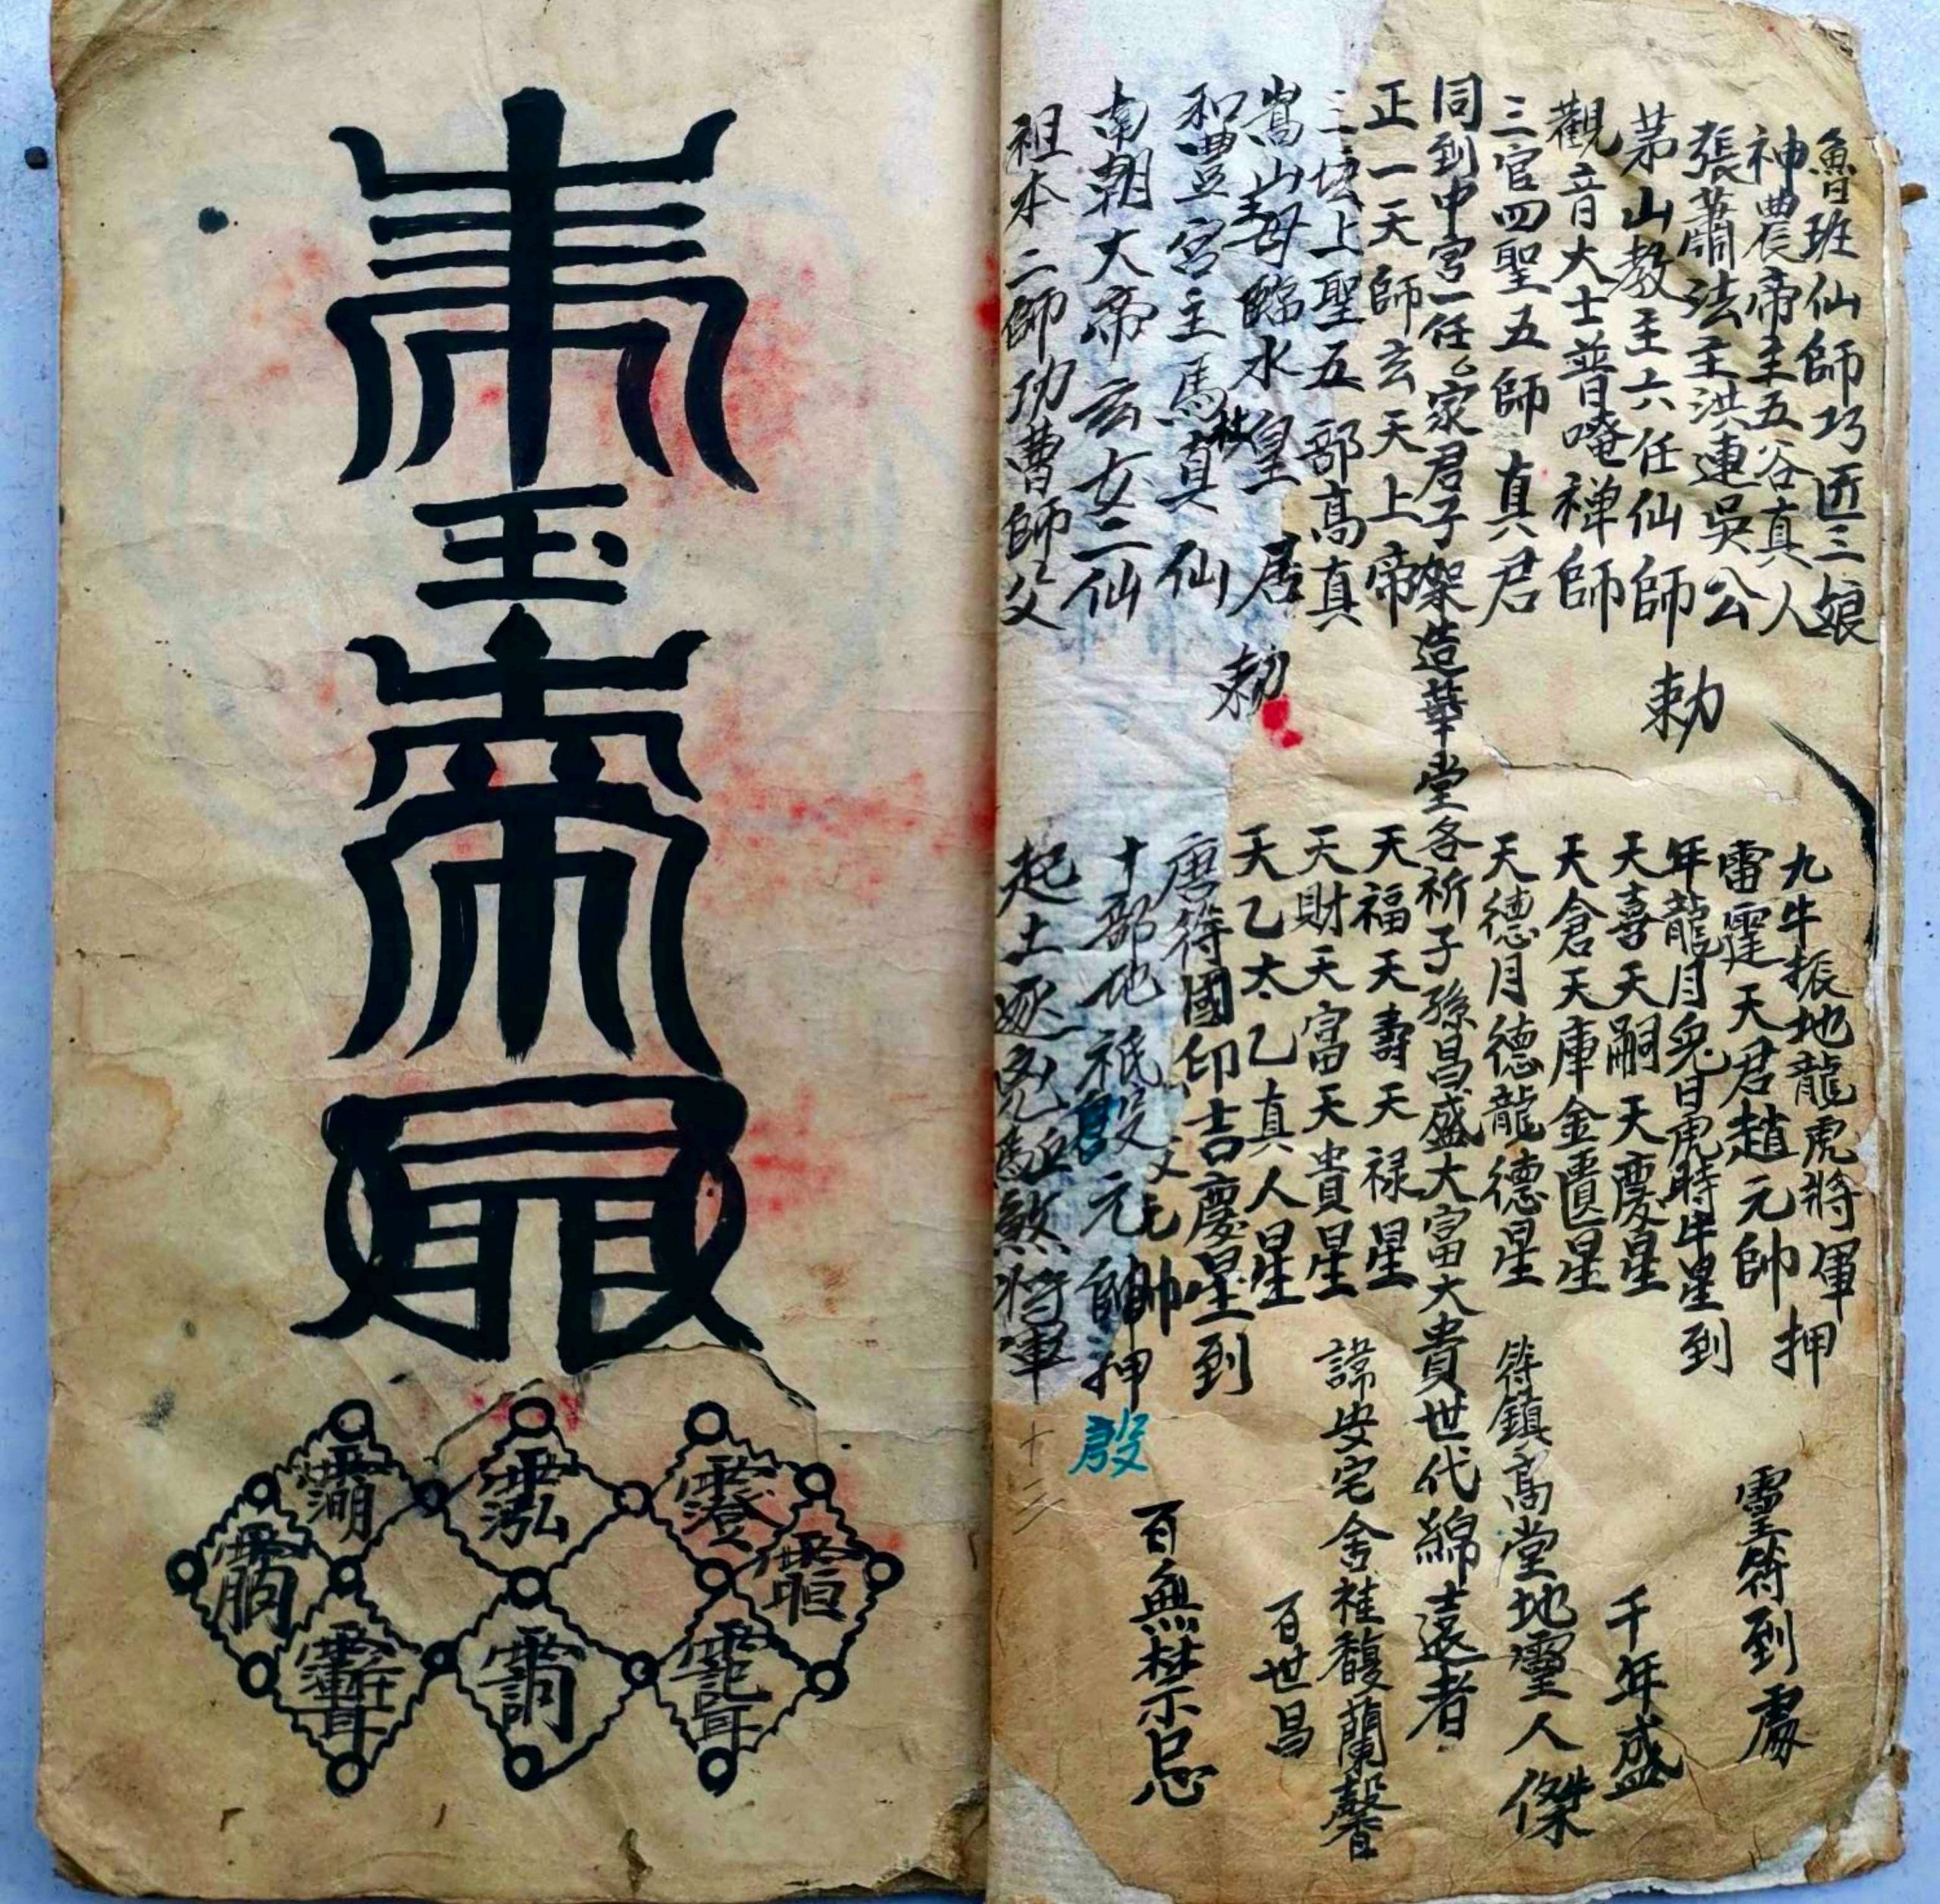 魯班仙師巧匠三娘
神農帝主五谷真人
張蕭法主洪連吳公
茅山教主六任仙師
勅
觀音大士普唵禅師
三官四聖五師真君
同到中宮一任家君子架造華堂各祈子孫昌盛大富大貴世代綿遠者
正一天師玄天上帝
三壇上聖五部高真
嵩山母臨水皇居
勅
和豐宮主馬真仙
南朝大帝玄女二仙
祖本二師功曹師父
九牛振地龍虎將軍押
雷霆天君趙元帥
年龍月兔日虎時牛星到
天喜天嗣天慶星
天倉天庫金匱星
天德月德龍德星
天福天壽天禄星
天財天富天貴星
天乙太乙真人星
唐符國印吉慶星到
十部地祇殷元帥押
殷
起土逐煞將軍
靈符到處
千年盛
符鎮高堂地靈人傑
諱安宅舍桂馥蘭馨
百世昌
百無禁忌
十二
玉
帝